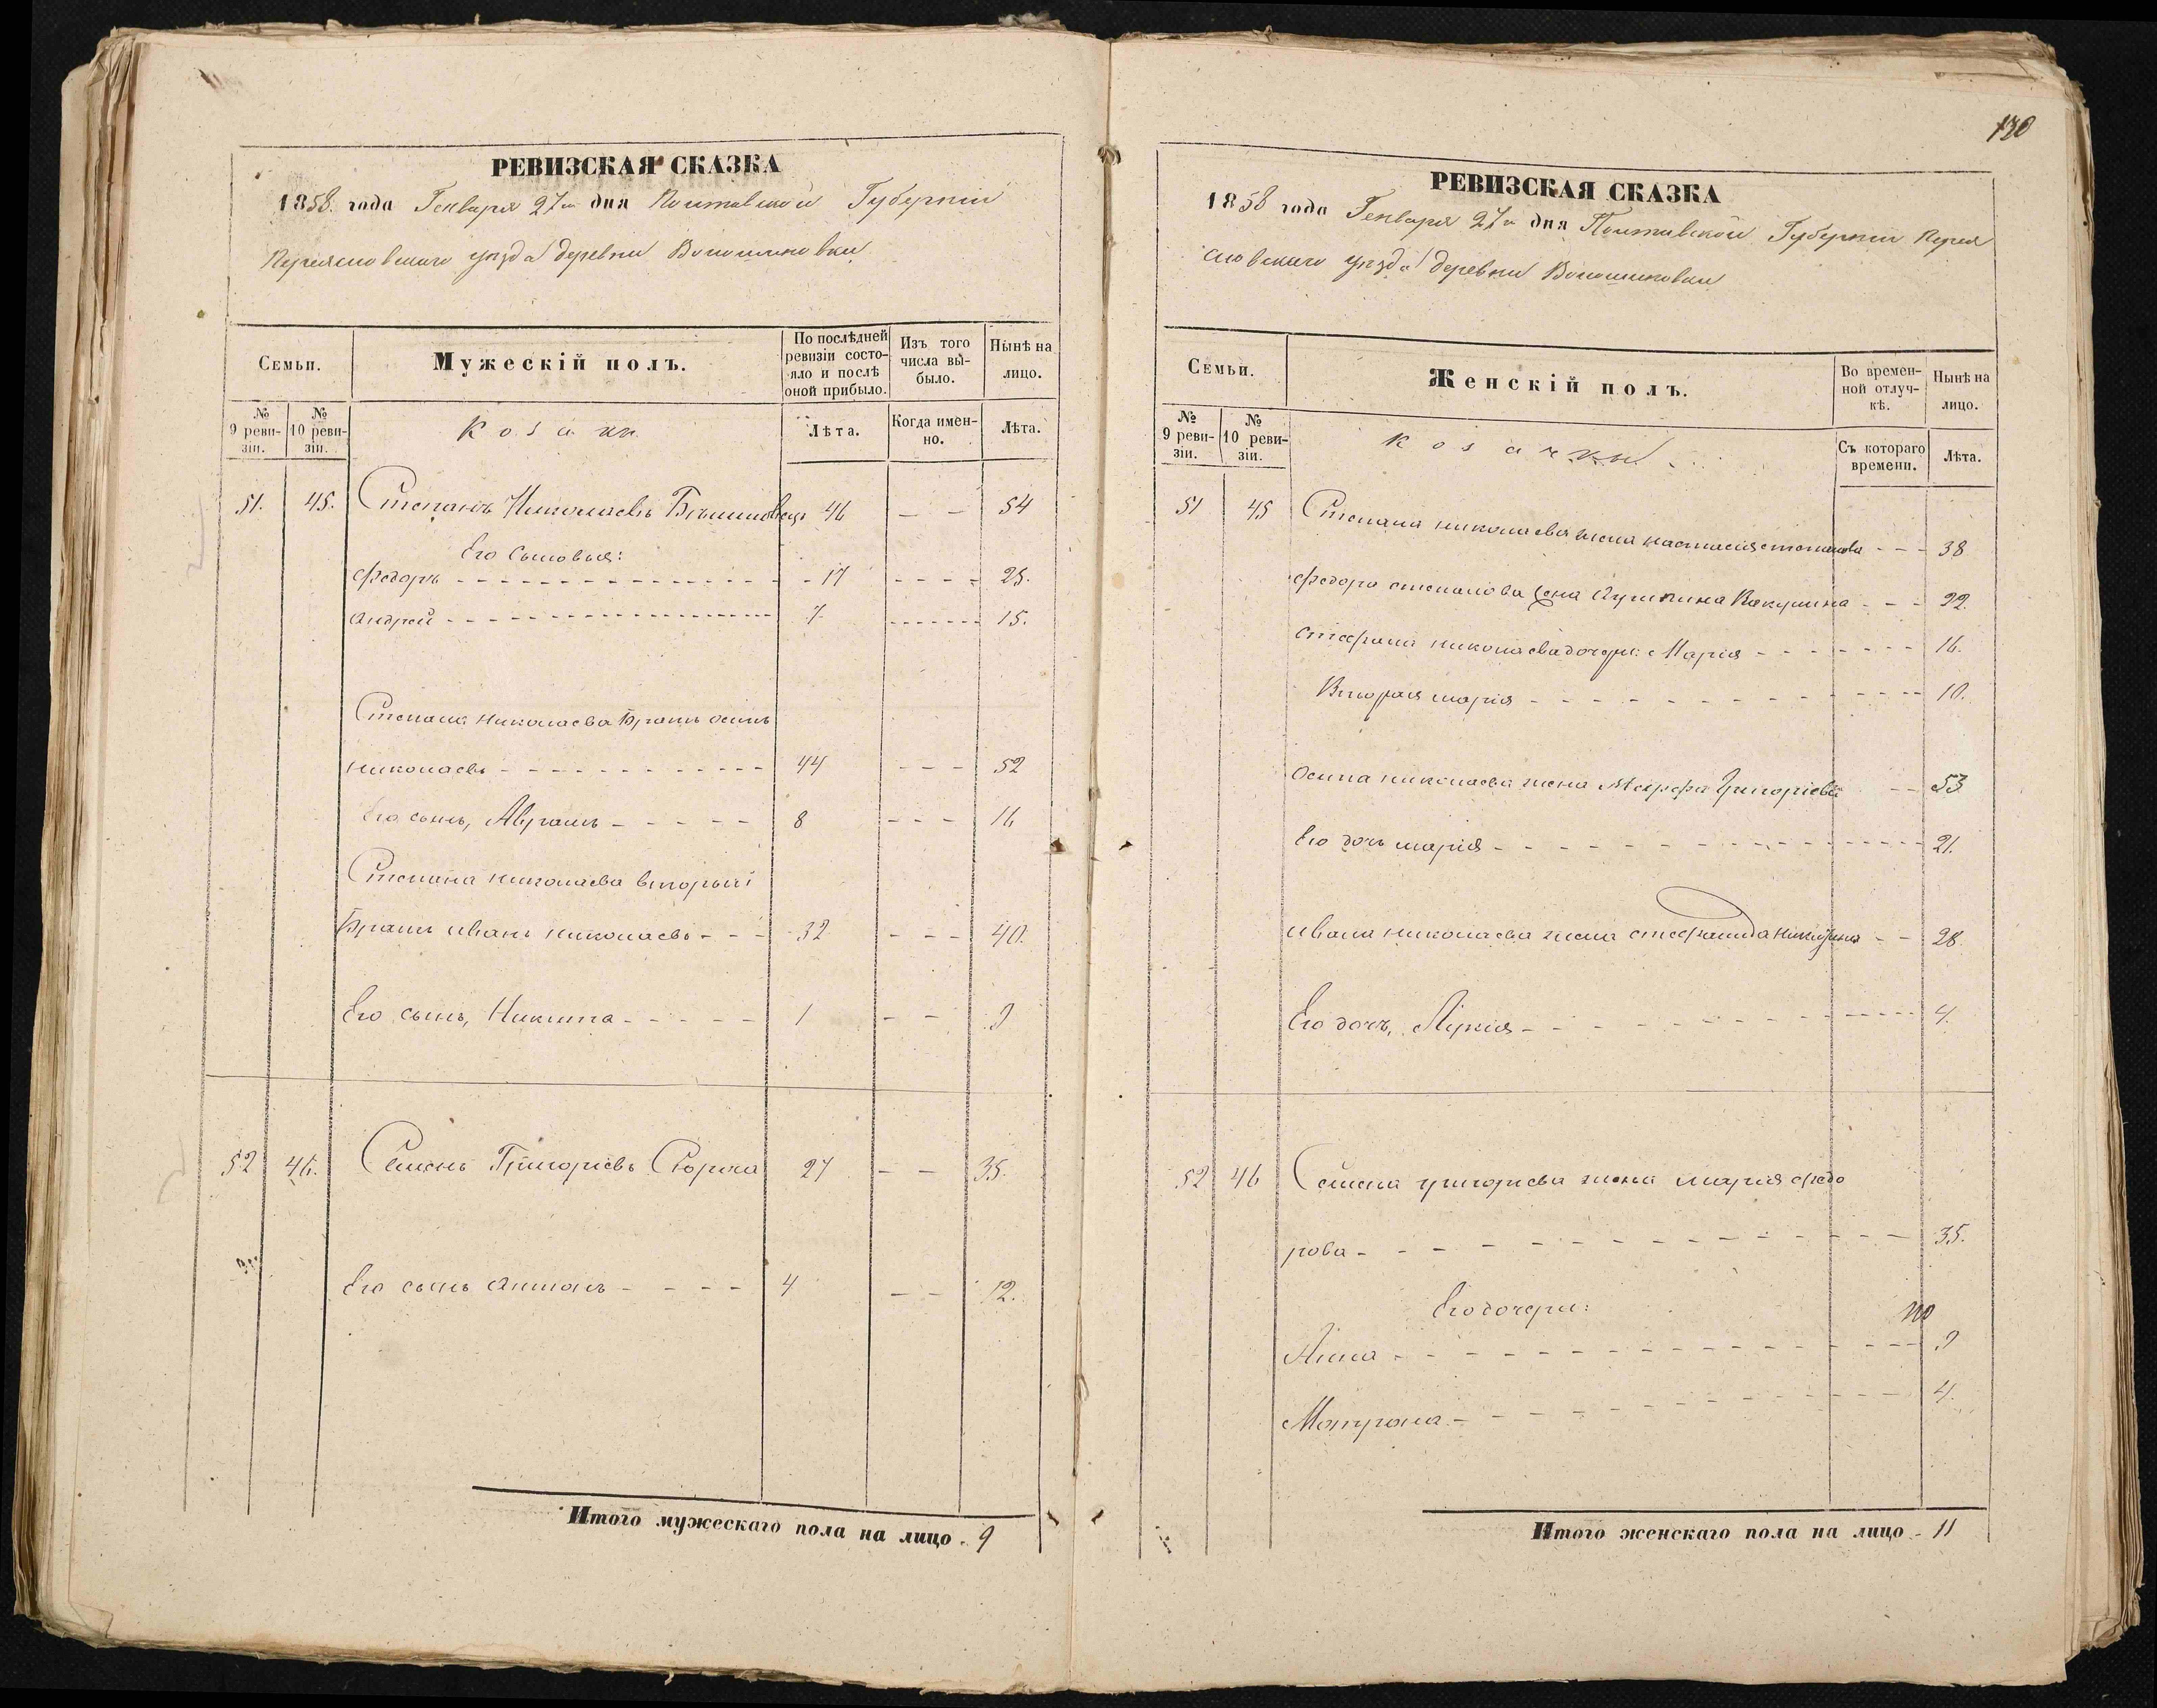 РЕВИЗСКАЯ СКАЗКА
1858. года Генваря 27го дня Полтавской Губернии
Переясловского уезда деревни Волошиновки
Семьи.
Мужескій полъ.
По послѣдней ревизіи состояло и послѣ оной прибыло.
Изъ того числа выбыло.
Нынѣ на лицо.
№ 9 ревизіи.
№ 10 ревизіи.
Козаки
Лѣта.
Когда именно.
Лѣта.
51. 45. Степанъ Николаевъ 46 — — 54
Его сыновья:
Федоръ 17 25.
Андрей 7 15.
Степана Николаева братъ Осипъ
Николаевъ 44 52
Его сынъ, Аврамъ 8 16
Степана Николаева вторый
братъ Иванъ Николаевъ 32 40.
Его сынъ, Никита 1 9
52 46. Семенъ Григоріевъ Сорока 27 — — 35.
Его сынъ Антонъ 4 12.
Итого мужескаго пола на лицо 9
120
РЕВИЗСКАЯ СКАЗКА
1858 года Генваря 27го дня Полтавской Губернии Перея
словского уезда деревни Волошиновки
Семьи.
Женскій полъ.
Во временной отлучкѣ.
Нынѣ на лицо.
№ 9 ревизіи.
№ 10 ревизіи.
Козачки
Съ котораго времени.
Лѣта.
51 45 Степана Николаева жена Настасія Степанова 38
Федора Степанова жена 22.
Стефана Николаева дочери: Марія 16.
Вторая Марія 10.
Осипа Николаева жена Марфа Григоріева 53
Его дочь Марія 21.
Ивана Николаева жена Стефанида 28.
Его дочь, 4.
52 46 Семена Григориева жена Марія Федо
рова 35.
Его дочери:
Анна 9
Матрона 4.
Итого женскаго пола на лицо 11